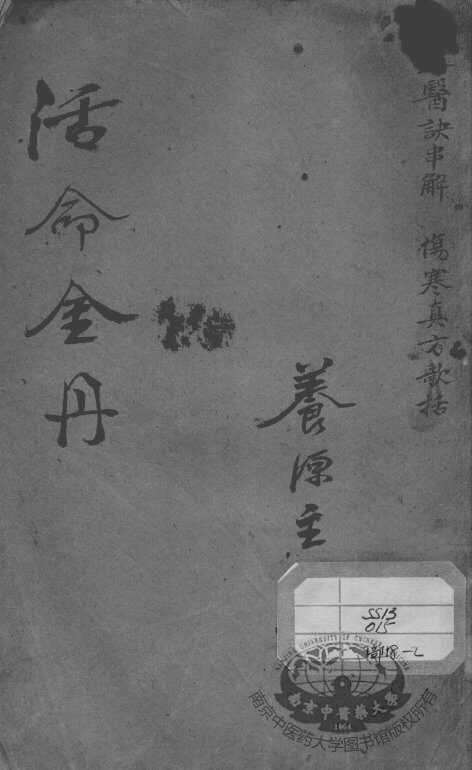 醫訣串解 傷寒真方歌括
養源主
活命金丹
SS13
015
NANJING UNIVERSITY OF CHINESE MEDICINE
南京中醫藥大學
1954
南京中医药大学图书馆版权所有